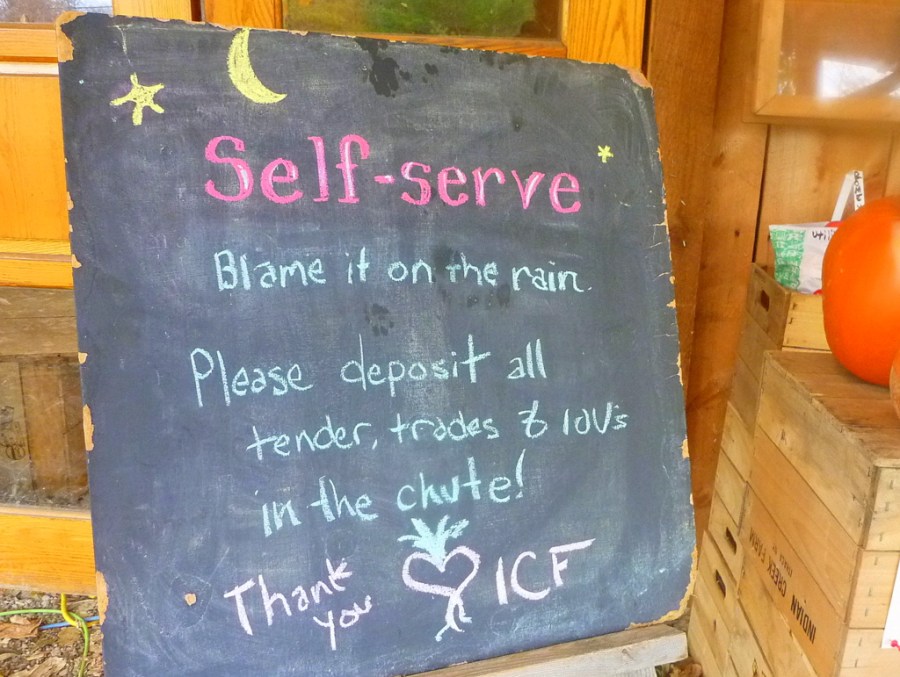 Self-serve
Blame it on the rain.
Please deposit all
tender, trades & IOU's
in the chute!
Thank
you
ICF
INDIAN CREEK FARM